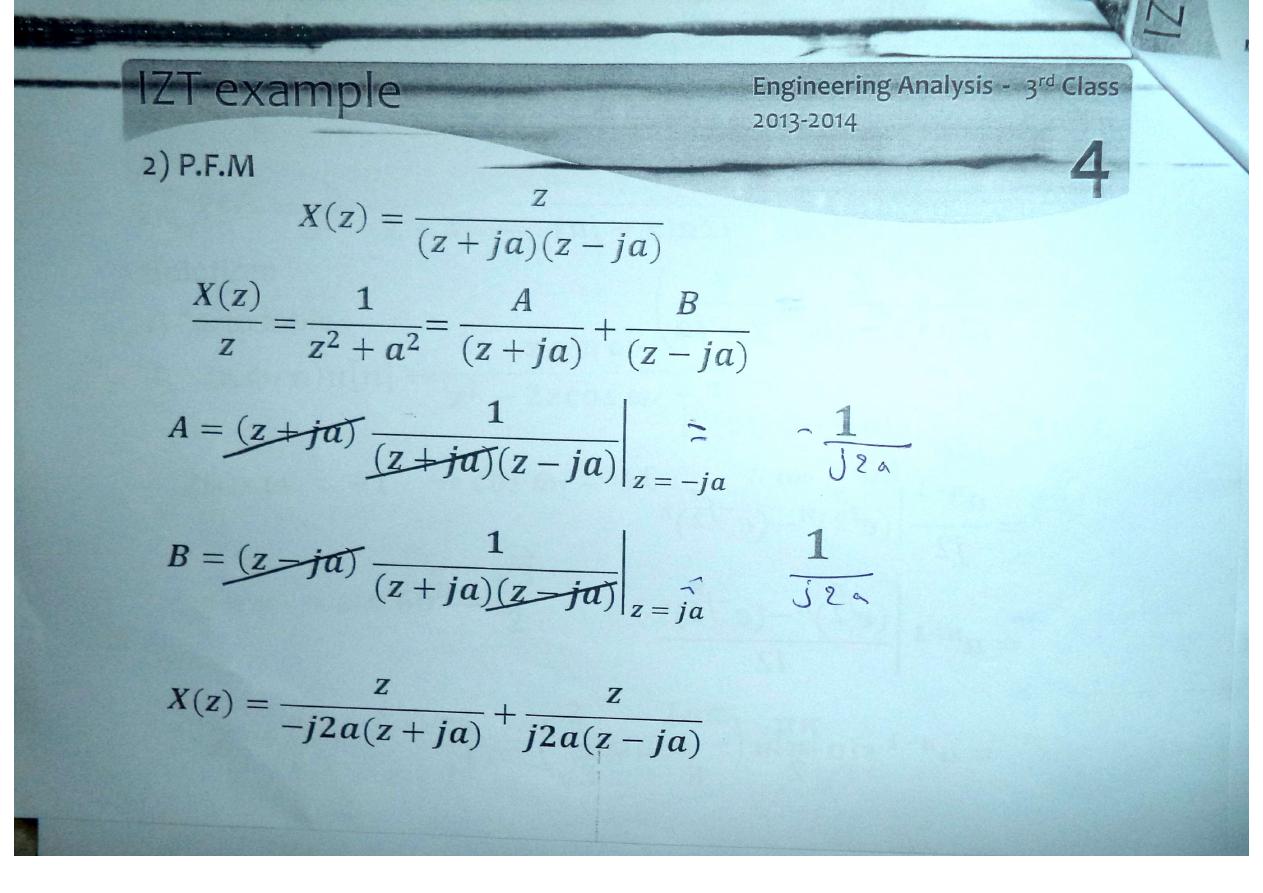 IZ
IZT example
Engineering Analysis - 3rd Class
2013-2014
4
2) P.F.M
X(z) = z / (z + ja)(z − ja)
X(z) / z = 1 / z² + a² = A / (z + ja) + B / (z − ja)
A = (z + ja) 1 / (z + ja)(z − ja) | z = −ja = - 1 / j2a
B = (z − ja) 1 / (z + ja)(z − ja) | z = ja = 1 / j2a
X(z) = z / −j2a(z + ja) + z / j2a(z − ja)